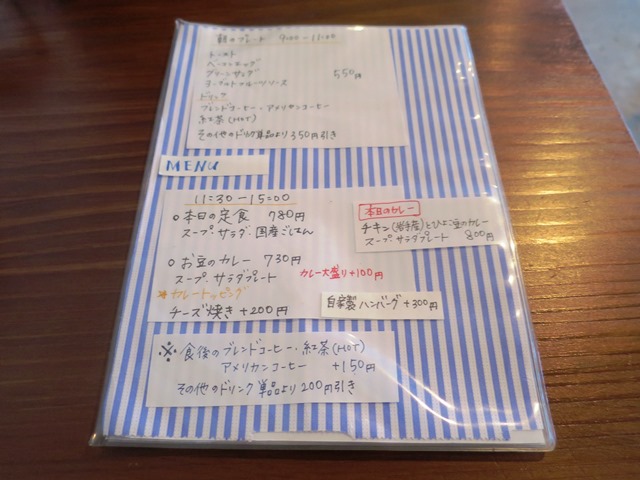 朝のプレート 9:00-11:00
トースト
ベーコンエッグ
グリーンサラダ
ヨーグルトフルーツソース
550円
ドリンク
ブレンドコーヒー・アメリカンコーヒー
紅茶(HOT)
その他のドリンク単品より350円引き
MENU
11:30-15:00
○本日の定食 780円
スープ・サラダ・国産ごはん
本日のカレー
チキン(岩手産)とひよこ豆のカレー
スープ・サラダプレート 800円
○お豆のカレー 730円
スープ・サラダプレート
カレー大盛り+100円
★カレートッピング
チーズ焼き+200円
自家製ハンバーグ+300円
※食後のブレンドコーヒー・紅茶(HOT)
アメリカンコーヒー +150円
その他のドリンク単品より200円引き